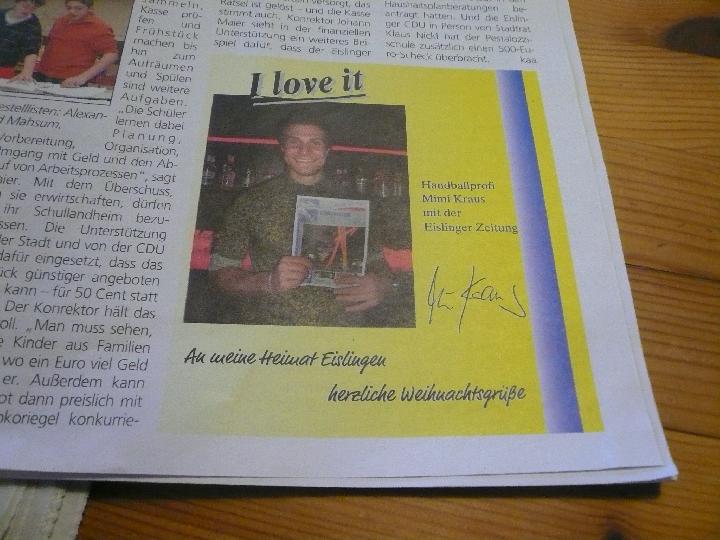 sammeln,
Kasse prü-
fen und
Frühstück
machen bis
hin zum
Aufräumen
und Spülen
sind weitere
Aufgaben.
„Die Schüler
lernen dabei
Planung,
Vorbereitung, Organisation,
Umgang mit Geld und den Ab-
auf von Arbeitsprozessen", sagt
aier. Mit dem Überschuss,
n sie erwirtschaften, dürfen
ihr Schullandheim bezu-
ssen. Die Unterstützung
der Stadt und von der CDU
dafür eingesetzt, dass das
ück günstiger angeboten
kann – für 50 Cent statt
Der Konrektor hält das
oll. „Man muss sehen,
e Kinder aus Familien
wo ein Euro viel Geld
er. Außerdem kann
ot dann preislich mit
okoriegel konkurrie-
estelllisten: Alexan-
d Mahsum.
Rätsel ist gelöst – und die Kasse
stimmt auch. Konrektor Johann
Maier sieht in der finanziellen
Unterstützung ein weiteres Bei-
spiel dafür, dass der Eislinger
Haushaltsplanberatungen be-
antragt hatten. Und die Eislin-
ger CDU in Person von Stadtrat
Klaus Nickl hat der Pestalozzi-
schule zusätzlich einen 500-Eu-
ro-Scheck überbracht. kaa
I love it
Handballprofi
Mimi Kraus
mit der
Eislinger Zeitung
An meine Heimat Eislingen
herzliche Weihnachtsgrüße